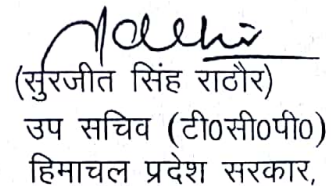 (सुरजीत सिंह राठौर)
उप सचिव (टी०सी०पी०)
हिमाचल प्रदेश सरकार,